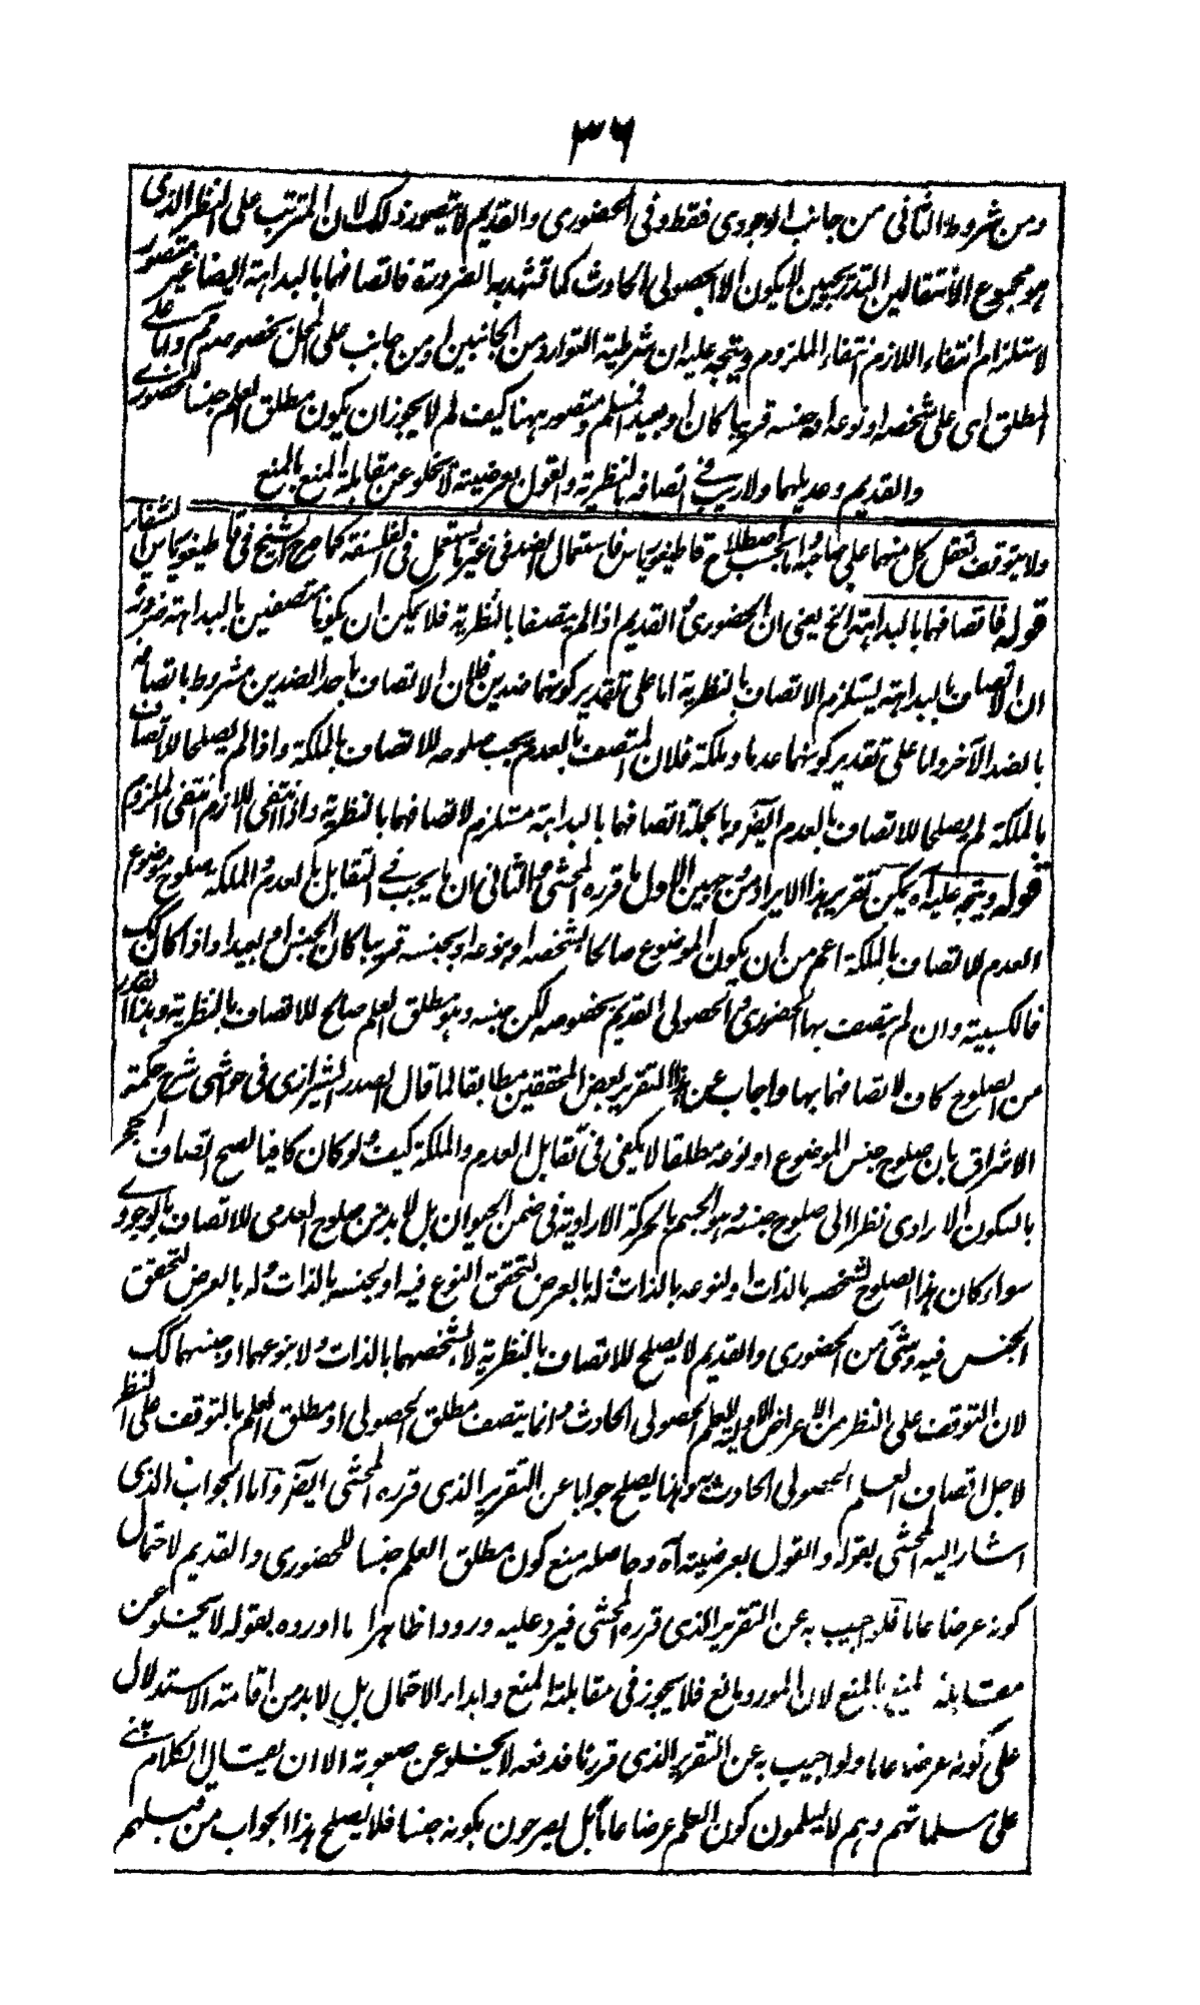 ٣٦
ومن شروط الثاني من جانب الوجودي فقط وفي الحضوري والقديم لا يتصور ذلك لان المترتب على النظر الذي
هو مجموع الانتقالين التدريجيين لا يكون الا الحصولي الحادث كما تشهد به الضرورة فاتصافهما بالبداهة ايضا غير متصور
لاستلزام انتفاء اللازم انتفاء الملزوم ويتجه عليه ان شرطية التوارد من الجانبين او من جانب على المحل بخصوصه مم واما على
المطلق اى على شخصه او نوعه او جنسه قريبا كان او بعيدا فمسلم ومتصور ههنا كيف لم لا يجوز ان يكون مطلق العلم جنسا للحضورى
والقديم وعديلهما ولا ريب في اتصافه بالنظرية والقول بعرضيته لا يخلو عن مقابلة المنع بالمنع
ولا يتوقف تعقل كل منهما على صاحبه واما بحسب اصطلاح قاطيغورياس فاستعمال الضد في غير ما يستعمل في الفلسفة كما صرح الشيخ في قاطيغورياس الشفاء
قوله فاتصافهما بالبداهة الخ يعنى ان الحضورى والقديم اذا لم يتصفا بالنظرية فلا يمكن ان يكونا متصفين بالبداهة ضرورة
ان الاتصاف بالبداهة يستلزم الاتصاف بالنظرية اما على تقدير كونهما ضدين فلان الاتصاف باحد الضدين مشروط باتصافه
بالضد الآخر واما على تقدير كونهما عدما وملكة فلان المتصف بالعدم يجب صلوحه للاتصاف بالملكة واذا لم يصلحا للاتصاف
بالملكة لم يصلحا للاتصاف بالعدم ايضا وبالجملة اتصافهما بالبداهة مستلزم لاتصافهما بالنظرية واذا انتفى اللازم انتفى الملزوم
قوله ويتجه عليه آه يمكن تقرير هذا الايراد من وجهين الاول ما قرره المحشى والثانى ان ما يجب في التقابل بالعدم والملكة صلوح موضوع
العدم للاتصاف بالملكة اعم من ان يكون الموضوع صالحا بشخصه او بنوعه او بجنسه قريبا كان الجنس ام بعيدا واذا كان كذلك
فالكسبية وان لم يتصف بها الحضورى والحصولى القديم بخصوصه لكن جنسه وهو مطلق العلم صالح للاتصاف بالنظرية وهذا القدر
من الصلوح كاف لاتصافهما بها واجاب عن هذا التقرير بعض المحققين مطابقا لما قال الصدر الشيرازى في حواشى شرح حكمة
الاشراق بان صلوح جنس الموضوع او نوعه مطلقا لا يكفى في تقابل العدم والملكة كيف ولو كان كافيا لصح اتصاف الحجر
بالسكون الارادى نظرا الى صلوح جنسه وهو الجسم بالحركة الارادية في ضمن الحيوان بل لا بد من صلوح العدمى للاتصاف بالوجودى
سواء كان هذا الصلوح لشخصه بالذات او لنوعه بالذات وله بالعرض لتحقق النوع فيه او لجنسه بالذات وله بالعرض لتحقق
الجنس فيه وشئ من الحضورى والقديم لا يصلح للاتصاف بالنظرية لا بشخصهما بالذات ولا بنوعهما او جنسهما كذلك
لان التوقف على النظر من الاعراض الاولية للعلم الحصولى الحادث وانما يتصف مطلق الحصولى او مطلق العلم بالتوقف على النظر
لاجل اتصاف العلم الحصولى الحادث به وهذا يصلح جوابا عن التقرير الذى قرره المحشى ايضا واما الجواب الذى
اشار اليه المحشى بقوله والقول بعرضيته آه وحاصله منع كون مطلق العلم جنسا للحضورى والقديم لاحتمال
كونه عرضا عاما فلو اجيب به عن التقرير الذى قرره المحشى فيرد عليه ورودا ظاهرا ما اورده بقوله لا يخلو عن
مقابلة المنع بالمنع لان المورد مانع فلا يجوز في مقابلته المنع وابداء الاحتمال بل لا بد من اقامة الاستدلال
على كونه عرضا عاما ولو اجيب به عن التقرير الذى قررنا فدفعه لا يخلو عن صعوبة الا ان يقال الكلام مبنى
على مسلماتهم وهم لا يسلمون كون العلم عرضا عاما بل يصرحون بكونه جنسا فلا يصلح هذا الجواب من قبلهم